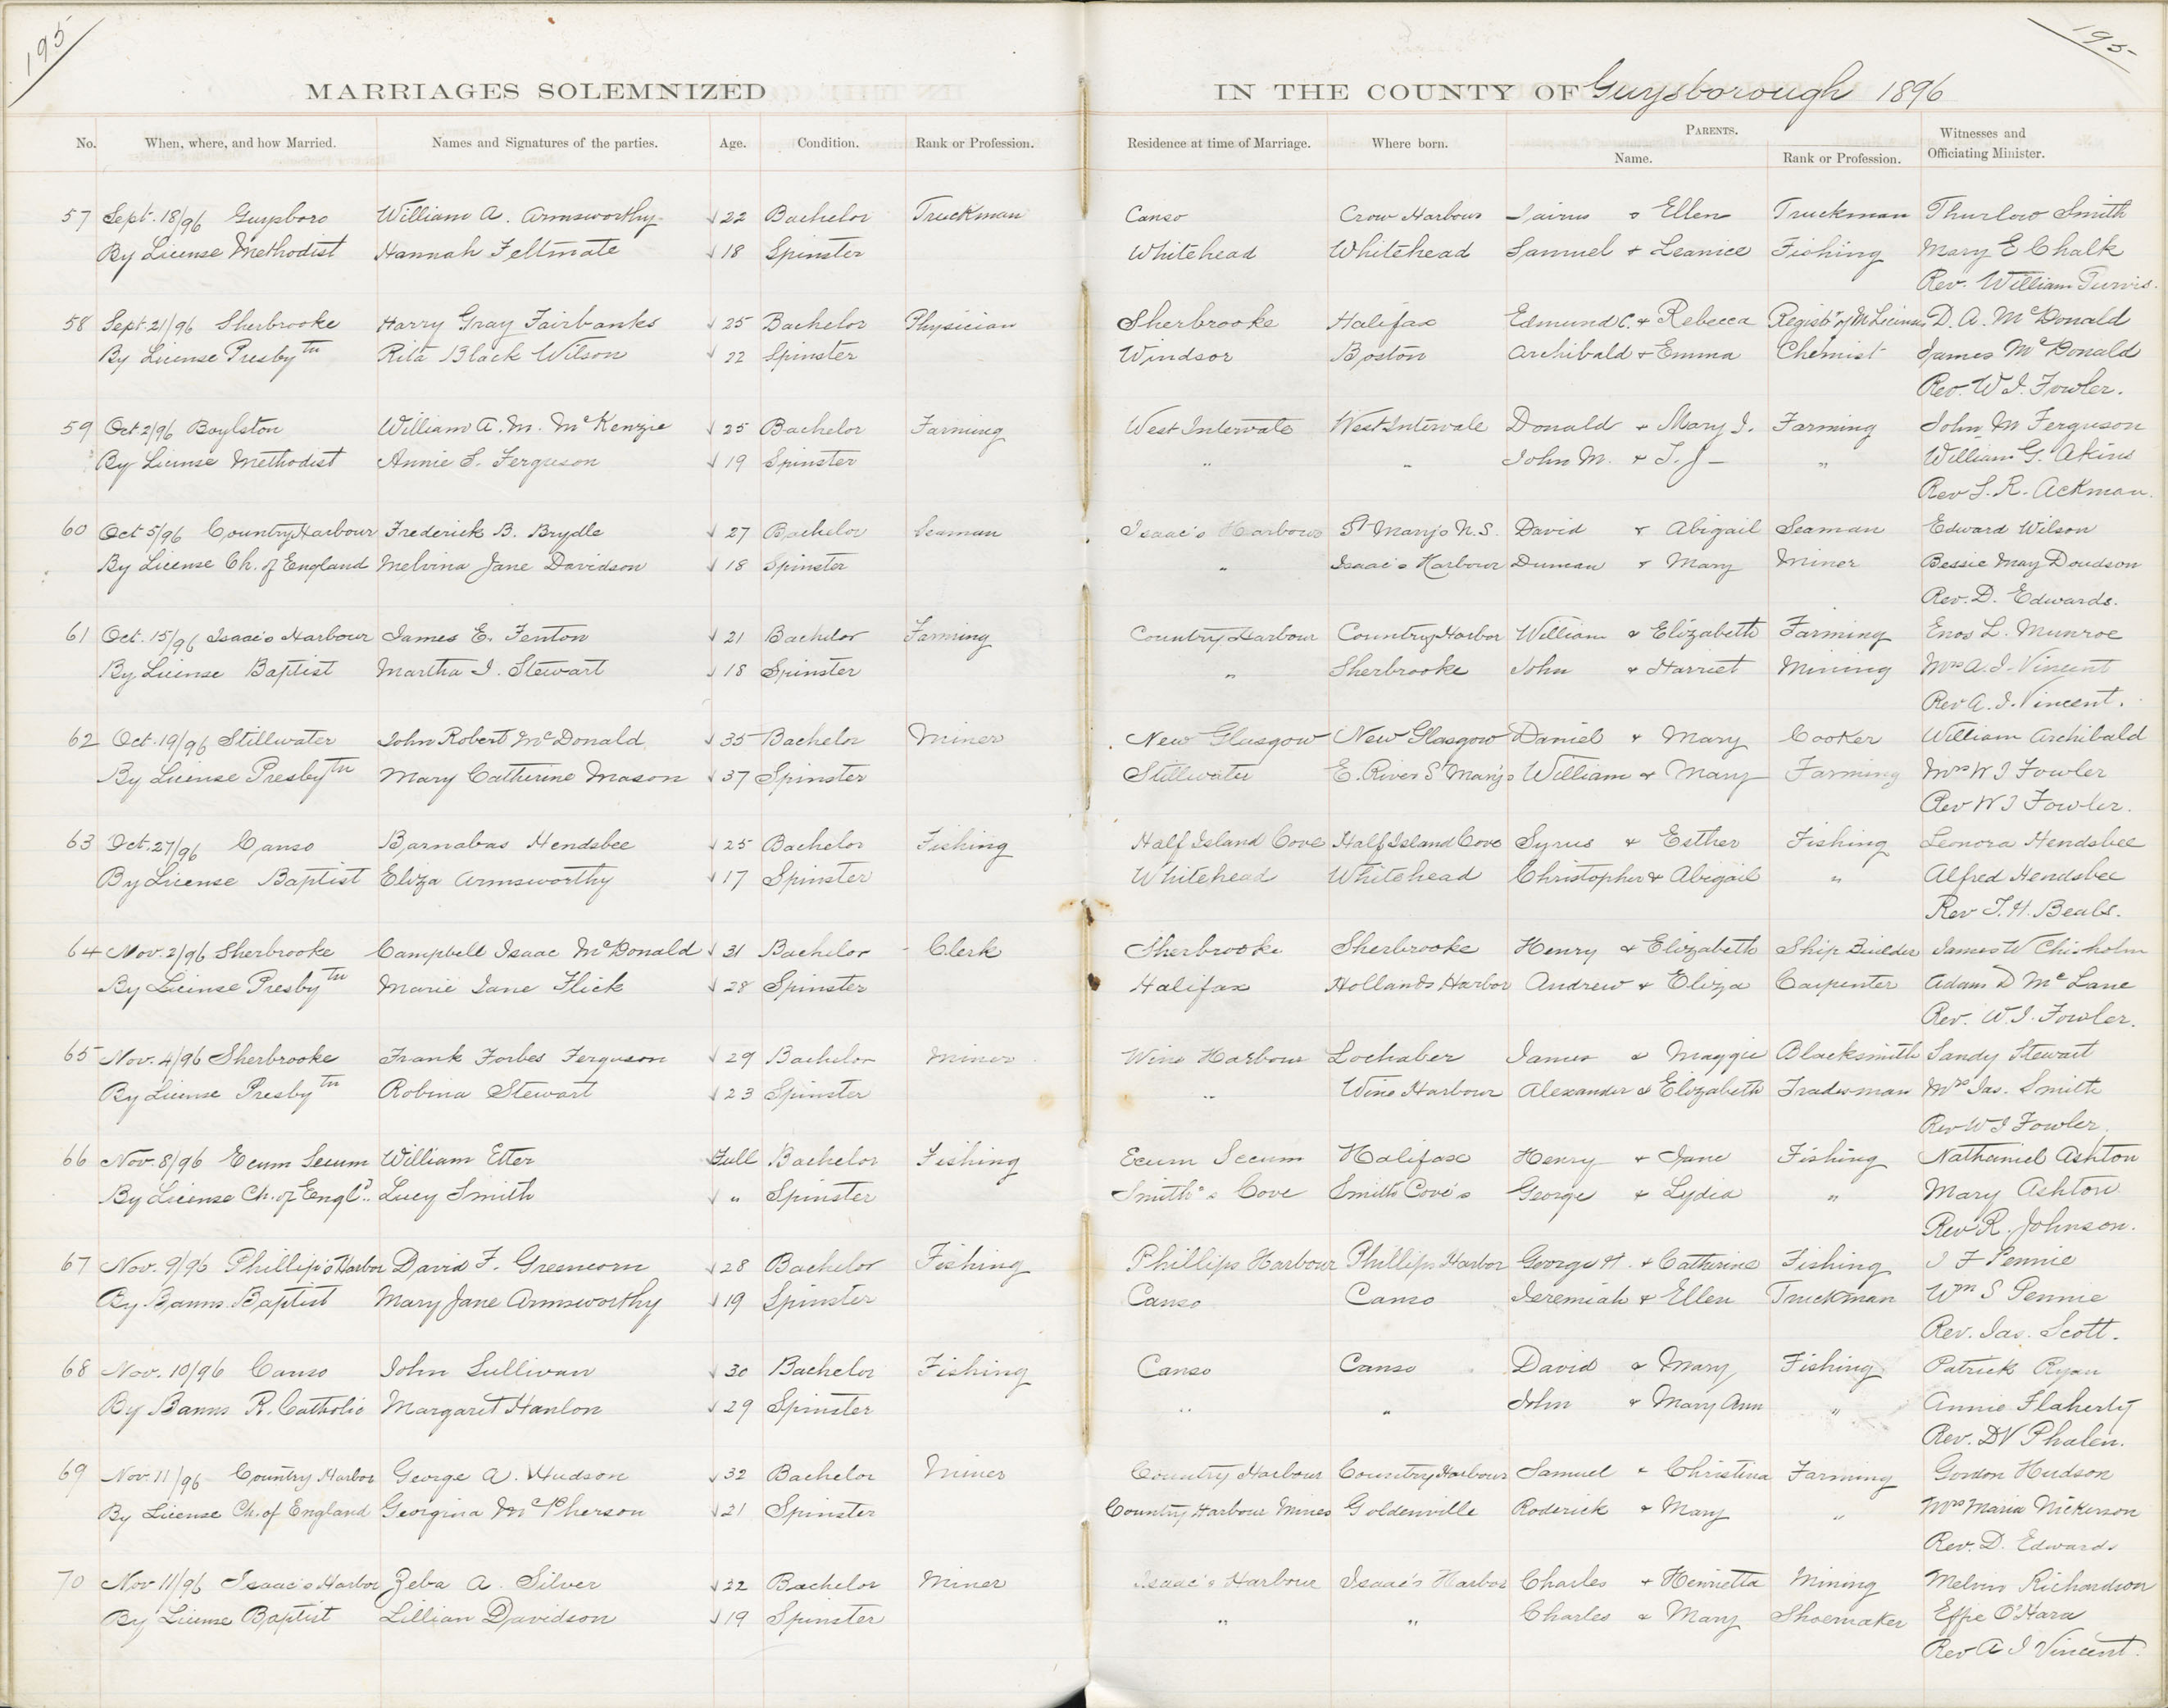 195 195
MARRIAGES SOLEMNIZED IN THE COUNTY OF Guysborough 1896
No. When, where, and how Married. Names and Signatures of the parties. Age. Condition. Rank or Profession. Residence at time of Marriage. Where born. PARENTS. Name. Rank or Profession. Witnesses and Officiating Minister.
57 Sept. 18/96 Guysboro William A. Armsworthy 22 Bachelor Truckman Canso Crow Harbour Jairus & Ellen Truckman Thurlow Smith
By License Methodist Hannah Feltmate 18 Spinster Whitehead Whitehead Samuel & Leanice Fishing Mary E Chalk
Rev. William Purvis.
58 Sept. 21/96 Sherbrooke Harry Gray Fairbanks 25 Bachelor Physician Sherbrooke Halifax Edmund C. & Rebecca Registr of M Licenses D. A. McDonald
By License Presbytn Rita Black Wilson 22 Spinster Windsor Boston Archibald & Emma Chemist James McDonald
Rev. W. I. Fowler.
59 Oct. 2/96 Boylston William A. M. McKenzie 25 Bachelor Farming West Intervale West Intervale Donald & Mary J. Farming John M Ferguson
By License Methodist Annie S. Ferguson 19 Spinster " " John M. & T. J— " William G. Akins
Rev S. R. Ackman.
60 Oct 5/96 Country Harbour Frederick B. Brydle 27 Bachelor Seaman Isaac's Harbour St Mary's N.S. David & Abigail Seaman Edward Wilson
By License Ch. of England Melvina Jane Davidson 18 Spinster " Isaac's Harbour Duncan & Mary Miner Bessie May Doudson
Rev. D. Edwards.
61 Oct. 15/96 Isaac's Harbour James E. Fenton 21 Bachelor Farming Country Harbour Country Harbor William & Elizabeth Farming Enos L. Munroe
By License Baptist Martha I. Stewart 18 Spinster " Sherbrooke John & Harriet Mining Mrs A. I. Vincent
Rev A. I. Vincent.
62 Oct. 19/96 Stillwater John Robert McDonald 35 Bachelor Miner New Glasgow New Glasgow Daniel & Mary Cooker William Archibald
By License Presbytn Mary Catherine Mason 37 Spinster Stillwater E. River St Mary's William & Mary Farming Mrs W I Fowler
Rev W I Fowler.
63 Oct. 27/96 Canso Barnabas Hendsbee 25 Bachelor Fishing Half Island Cove Half Island Cove Syrus & Esther Fishing Leonora Hendsbee
By License Baptist Eliza Armsworthy 17 Spinster Whitehead Whitehead Christopher & Abigail " Alfred Hendsbee
Rev T. H. Beals.
64 Nov. 2/96 Sherbrooke Campbell Isaac McDonald 31 Bachelor Clerk Sherbrooke Sherbrooke Henry & Elizabeth Ship Builder James W Chisholm
By License Presbytn Marie Jane Flick 28 Spinster Halifax Hollands Harbor Andrew & Eliza Carpenter Adam D McLane
Rev. W. I. Fowler.
65 Nov. 4/96 Sherbrooke Frank Forbes Ferguson 29 Bachelor Miner Wine Harbour Lochaber James & Maggie Blacksmith Sandy Stewart
By License Presbytn Robina Stewart 23 Spinster " Wine Harbour Alexander & Elizabeth Tradesman Mrs Jas. Smith
Rev W I Fowler.
66 Nov. 8/96 Ecum Secum William Etter Full Bachelor Fishing Ecum Secum Halifax Henry & Jane Fishing Nathaniel Ashton
By License Ch. of Engld. Lucy Smith " Spinster Smith's Cove Smiths Cove's George & Lydia " Mary Ashton
Rev R. Johnson.
67 Nov. 9/96 Phillip's Harbor David F. Greencorn 28 Bachelor Fishing Phillips Harbour Phillips Harbor George H. & Catherine Fishing J F Pennie
By Banns. Baptist Mary Jane Armsworthy 19 Spinster Canso Canso Jeremiah & Ellen Truckman Wm S Pennie
Rev. Jas. Scott.
68 Nov. 10/96 Canso John Sullivan 30 Bachelor Fishing Canso Canso David & Mary Fishing Patrick Ryan
By Banns R. Catholic Margaret Hanlon 29 Spinster " " John & Mary Ann " Annie Flaherty
Rev. D V Phalen.
69 Nov 11/96 Country Harbor George A. Hudson 32 Bachelor Miner Country Harbour Country Harbour Samuel & Christina Farming Gordon Hudson
By License Ch. of England Georgina McPherson 21 Spinster Country Harbour Mines Goldenville Roderick & Mary " Mrs Maria Nickerson
Rev. D. Edwards
70 Nov 11/96 Isaac's Harbor Zeba A. Silver 22 Bachelor Miner Isaac's Harbour Isaac's Harbor Charles & Henrietta Mining Melvin Richardson
By License Baptist Lillian Davidson 19 Spinster " " Charles & Mary Shoemaker Effie O'Hara
Rev A I Vincent.